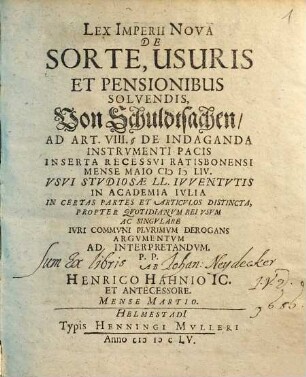 LEX IMPERII NOVA
DE
SORTE, USURIS
ET PENSIONIBUS
SOLVENDIS,
Von Schuldtsachen/
AD ART. VIII. § DE INDAGANDA
INSTRVMENTI PACIS
INSERTA RECESSVI RATISBONENSI
MENSE MAIO CIƆ IƆ LIV.
VSVI STVDIOSÆ LL. IVVENTVTIS
IN ACADEMIA IVLIA
IN CERTAS PARTES ET ARTICVLOS DISTINCTA,
PROPTER QVOTIDIANVM REI VSVM
AC SINGVLARE
IVRI COMMVNI PLVRIMVM DEROGANS
ARGVMENTVM
AD INTERPRETANDVM.
P. P.
AB
Sum Ex libris Johan: Neydecker
HENRICO HAHNIO IC.
ET ANTECESSORE.
MENSE MARTIO.
HELMESTADI
Typis HENNINGI MVLLERI
Anno CIƆ IƆ C LV.